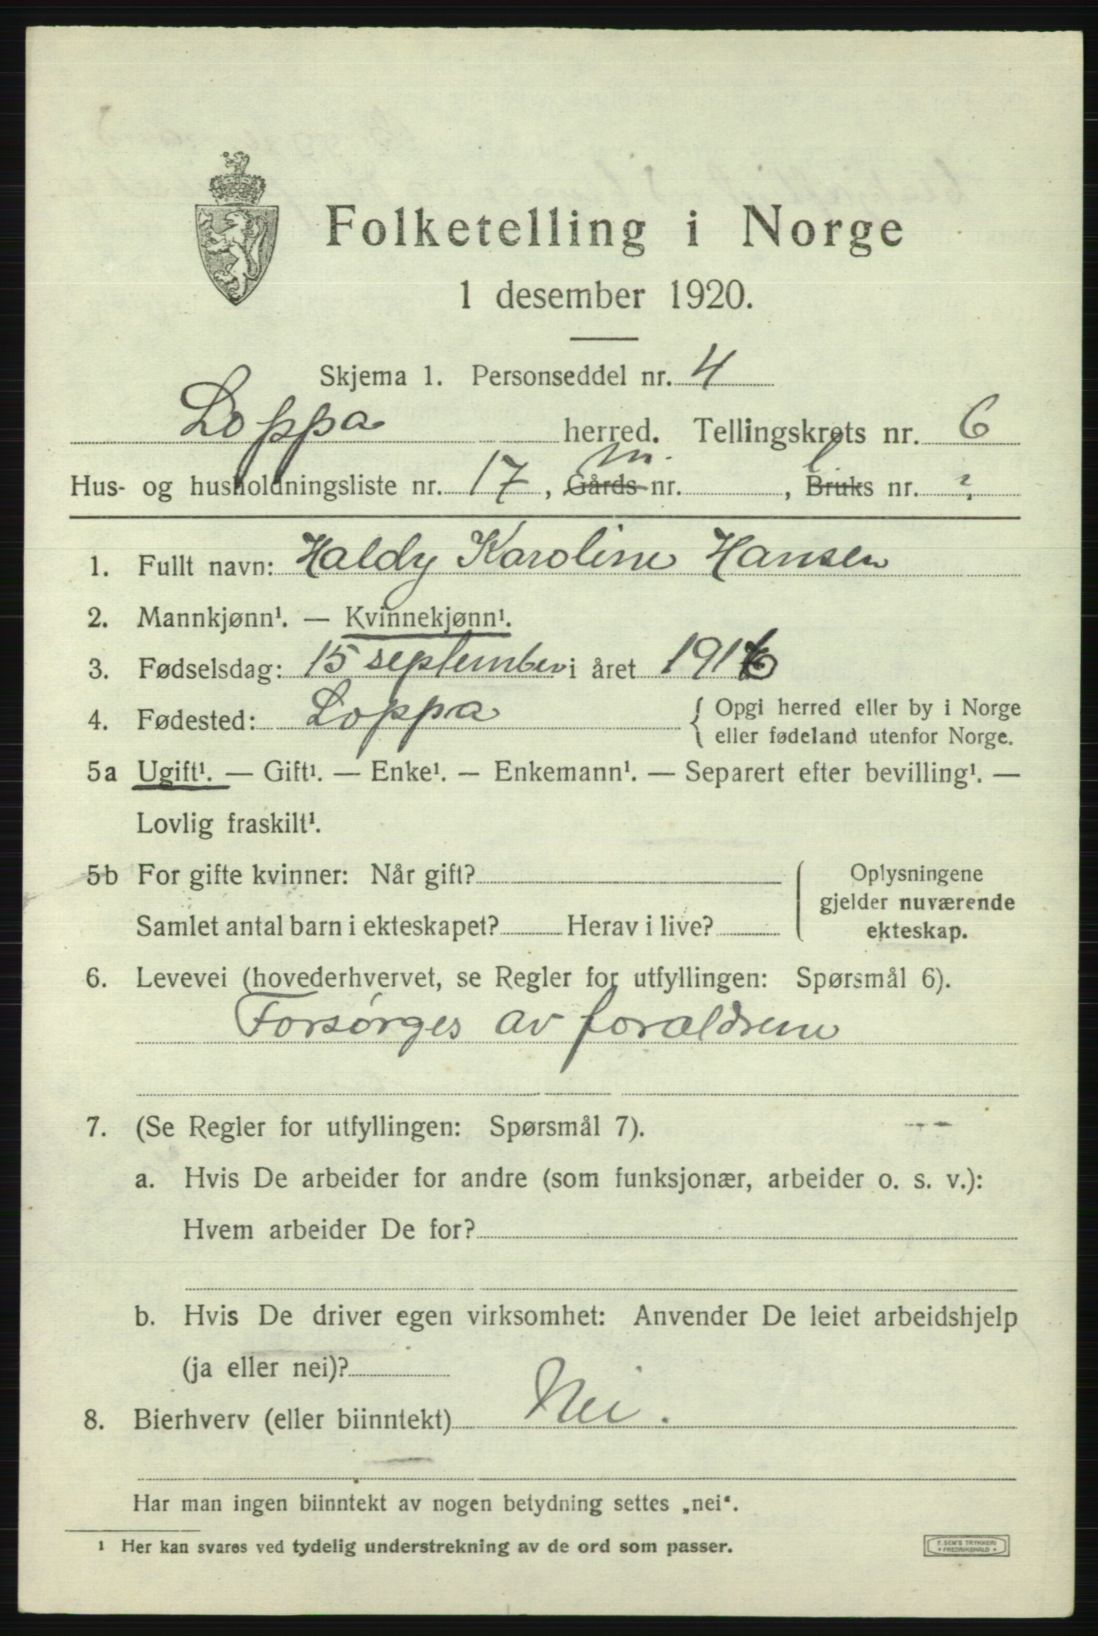 Folketelling i Norge
1 desember 1920.
Skjema 1. Personseddel nr. 4
Loppa herred. Tellingskrets nr. 6
Hus- og husholdningsliste nr. 17, Gårds-nr. , Bruks nr. ?
m. l
1. Fullt navn: Haldy Karoline Hansen
2. Mannkjønn¹. — Kvinnekjønn¹.
3. Fødselsdag: 15 september i året 1916
4. Fødested: Loppa { Opgi herred eller by i Norge
eller fødeland utenfor Norge.
5a Ugift¹. — Gift¹. — Enke¹. — Enkemann¹. — Separert efter bevilling¹. —
Lovlig fraskilt¹.
5b For gifte kvinner: Når gift? Oplysningene
gjelder nuværende
Samlet antal barn i ekteskapet? Herav i live? ekteskap.
6. Levevei (hovederhvervet, se Regler for utfyllingen: Spørsmål 6).
Forsørges av forældrene
7. (Se Regler for utfyllingen: Spørsmål 7).
a. Hvis De arbeider for andre (som funksjonær, arbeider o. s. v.):
Hvem arbeider De for?
b. Hvis De driver egen virksomhet: Anvender De leiet arbeidshjelp
(ja eller nei)?
8. Bierhverv (eller biinntekt) Nei.
Har man ingen biinntekt av nogen betydning settes „nei“.
¹ Her kan svares ved tydelig understrekning av de ord som passer.
F. SEM'S TRYKKERI
• FREDRIKSHALD •